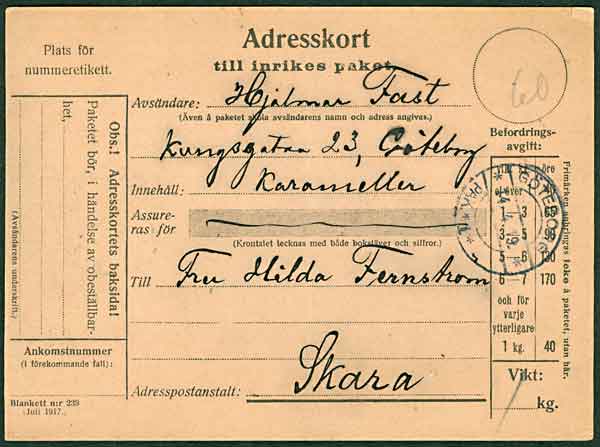 Plats för
nummeretikett.
Adresskort
till inrikes paket.
60
Avsändare: Hjalmar Fast
(Även å paketet skola avsändarens namn och adress angivas.)
Kungsgatan 23, Göteborg
Innehåll: Karameller
Assure-
ras för
(Krontalet tecknas med både bokstäver och siffror.)
Till Fru Hilda Fernstrom
Skara
Adresspostanstalt:
Befordrings-
avgift:
öre
1 3 65
3 5 95
5 6 130
6 7 170
och för
varje
ytterligare
1 kg. 40
Vikt:
kg.
GÖTEBORG
Frimärken anbringas icke å paketet, utan här.
Obs.! Adresskortets baksida!
Paketet bör, i händelse av obeställbar-
het,
(Avsändarens underskrift.)
Ankomstnummer
(i förekommande fall):
Blankett n:r 233
(Juli 1917.)